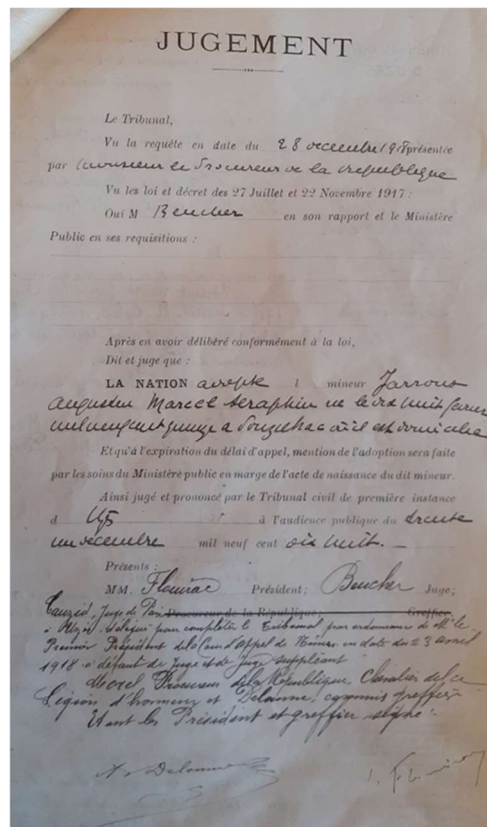 JUGEMENT
Le Tribunal,
Vu la requête en date du 28 decembre 1918 présentée
par Monsieur le Procureur de la République
Vu les loi et décret des 27 Juillet et 22 Novembre 1917 :
Oui M Beucher en son rapport et le Ministère
Public en ses requisitions :
Après en avoir délibéré conformément à la loi,
Dit et juge que :
LA NATION adopte l mineur
Augustin Marcel Séraphin né le dix huit
mil neuf cent quinze à où il est domicilié
Et qu'à l'expiration du délai d'appel, mention de l'adoption sera faite
par les soins du Ministère public en marge de l'acte de naissance du dit mineur.
Ainsi jugé et prononcé par le Tribunal civil de première instance
d Uzès à l'audience publique du trente
un decembre mil neuf cent dix huit. —
Présents :
MM. Président; Beucher Juge;
Juge de Paix Procureur de la République; Greffier.
à Uzès délégué pour compléter le Tribunal par ordonnance de M le
Premier Président de la Cour d'appel de Nimes en date du 23 avril
1918 à défaut de Juge et de Juge suppléant
Morel Procureur de la République, Chevalier de la
Légion d'honneur et Delaune, commis greffier
Etant les Président et greffier signé :
Delaune